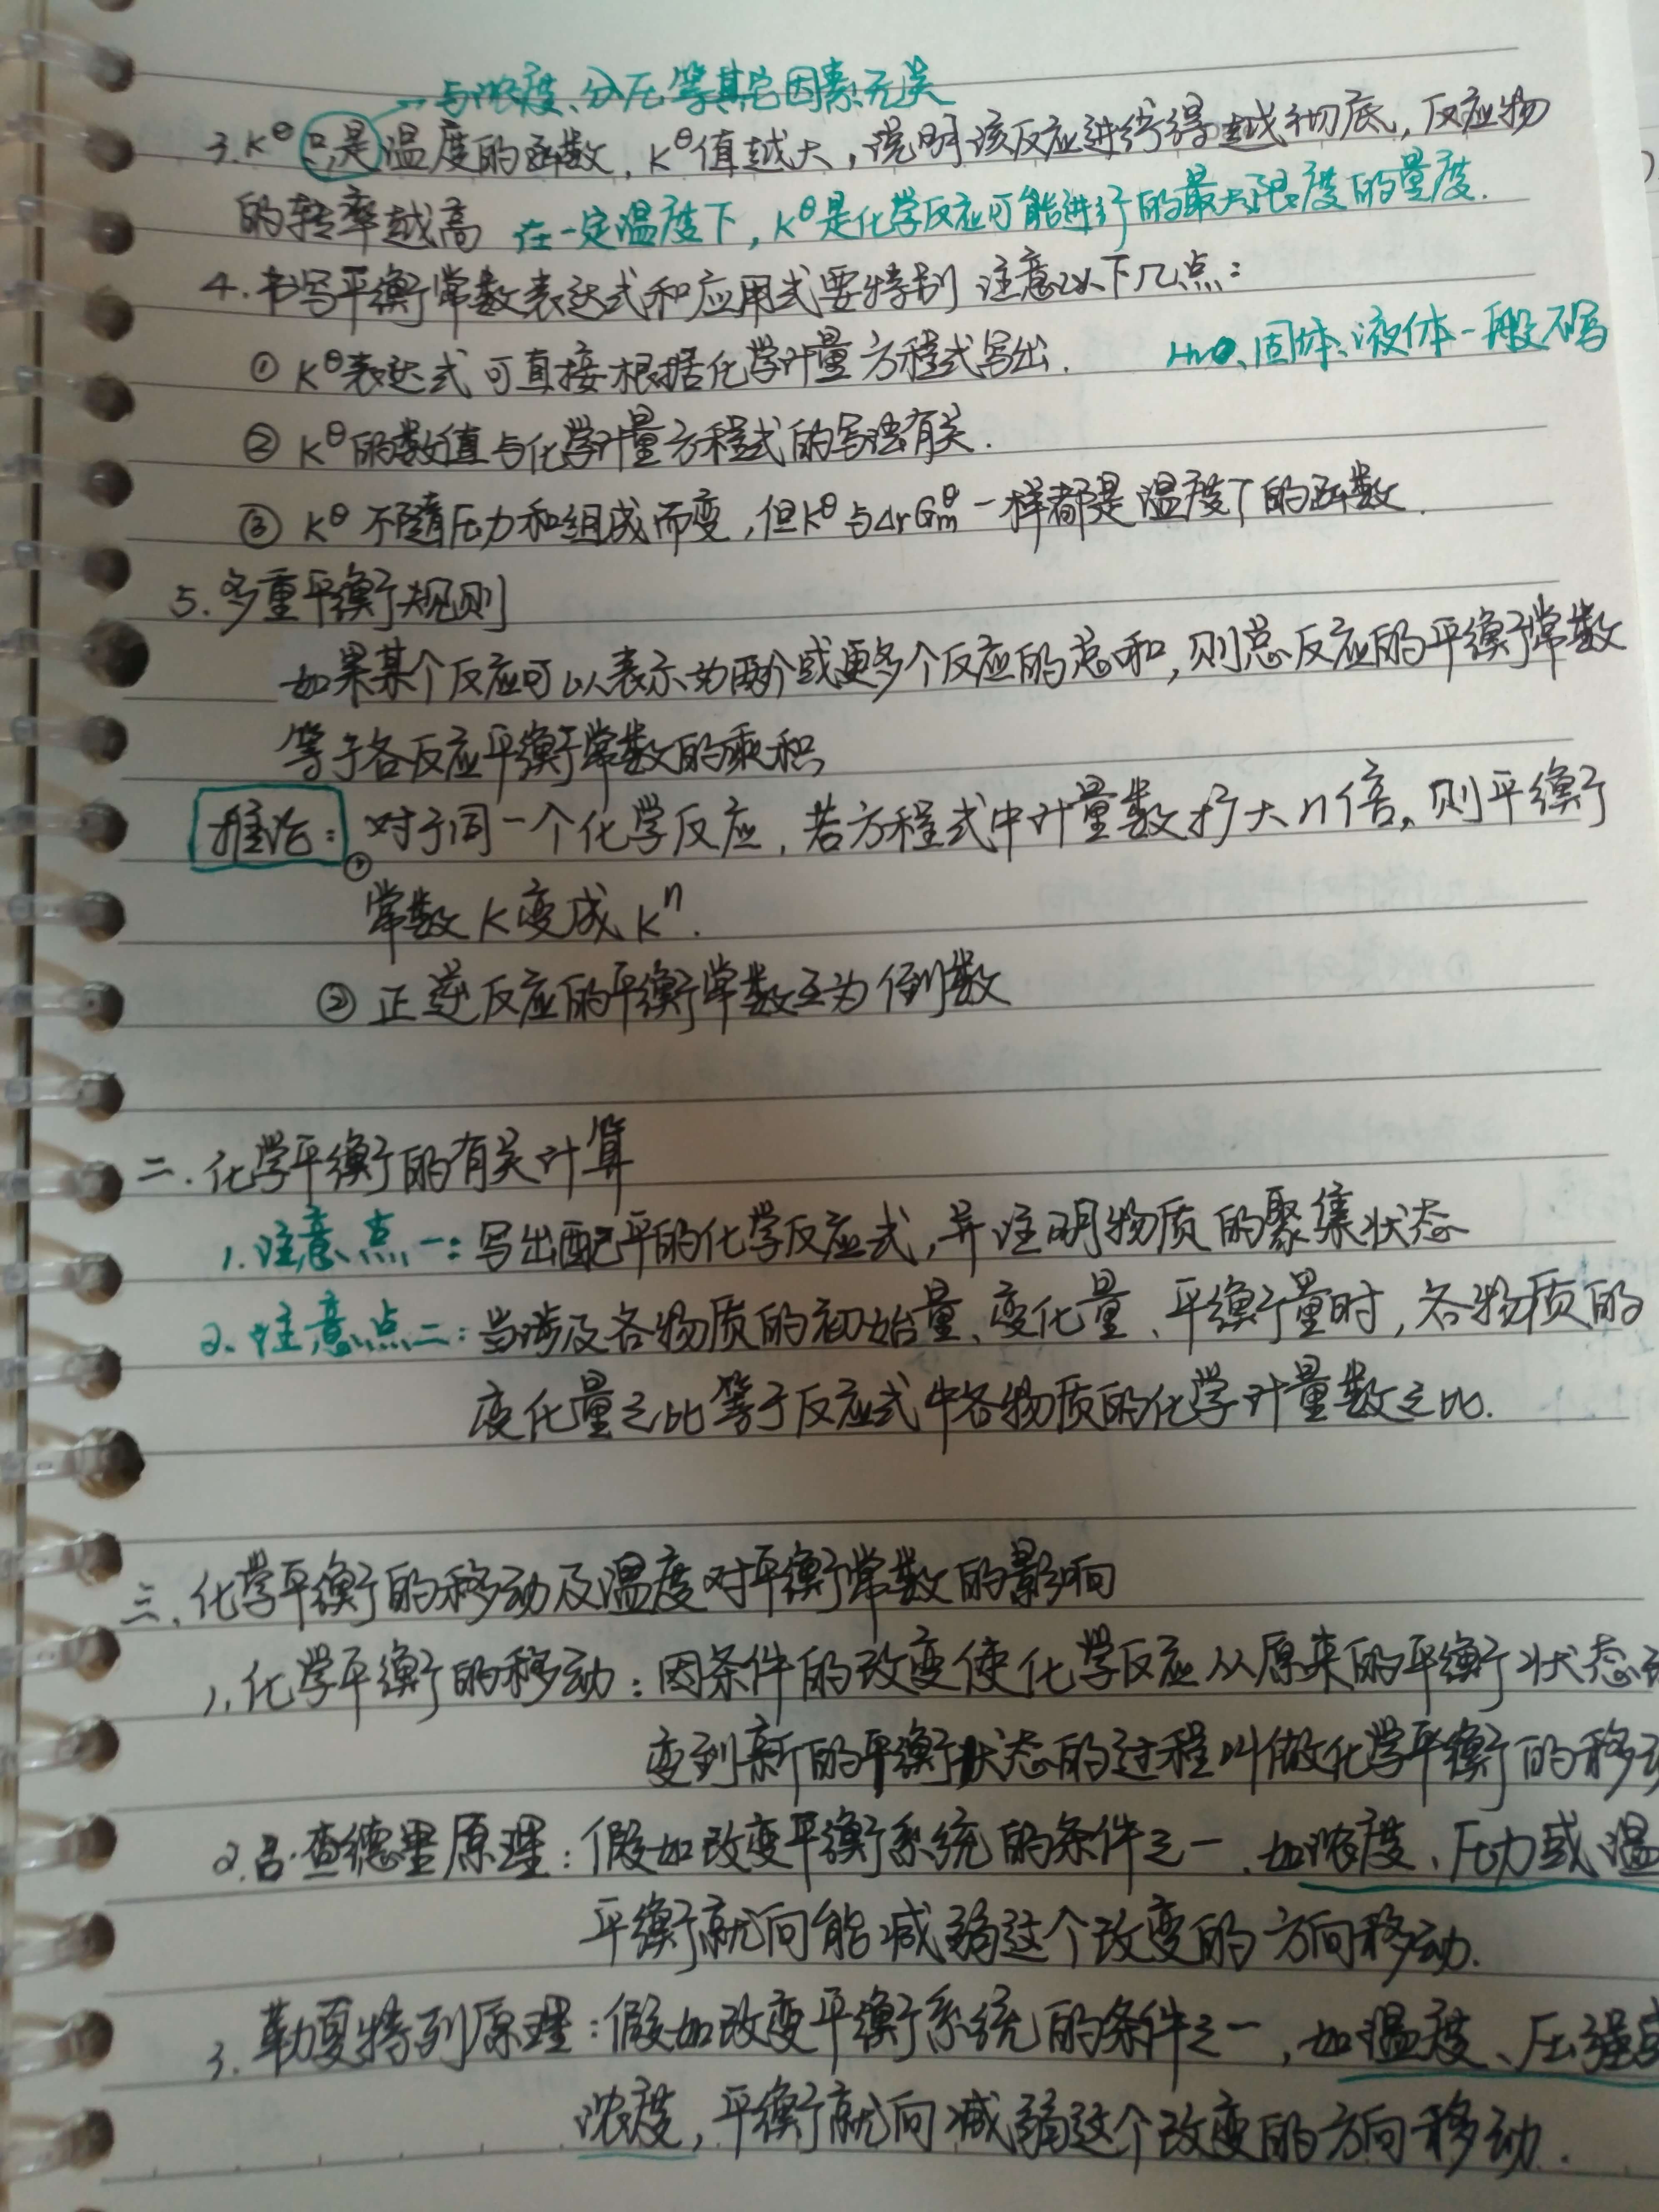 与浓度、分压等其它因素无关
3. K^θ 只是温度的函数，K^θ值越大，说明该反应进行得越彻底，反应物
的转率越高 在一定温度下，K^θ是化学反应可能进行的最大限度的量度.
4. 书写平衡常数表达式和应用式要特别注意以下几点：
① K^θ表达式可直接根据化学计量方程式写出. H₂O、固体、液体一般不写
② K^θ的数值与化学计量方程式的写法有关.
③ K^θ 不随压力和组成而变，但K^θ与ΔrGm^θ一样都是温度T的函数.
5. 多重平衡规则
如果某个反应可以表示为两个或更多个反应的总和，则总反应的平衡常数
等于各反应平衡常数的乘积
推论：① 对于同一个化学反应，若方程式中计量数扩大n倍，则平衡
常数K变成K^n.
② 正逆反应的平衡常数互为倒数
二. 化学平衡的有关计算
1. 注意点一：写出配平的化学反应式，并注明物质的聚集状态
2. 注意点二：当涉及各物质的初始量、变化量、平衡量时，各物质的
变化量之比等于反应式中各物质的化学计量数之比.
三. 化学平衡的移动及温度对平衡常数的影响
1. 化学平衡的移动：因条件的改变使化学反应从原来的平衡状态
变到新的平衡状态的过程叫做化学平衡的移
2. 吕·查德里原理：假如改变平衡系统的条件之一，如浓度、压力或温
平衡就向能减弱这个改变的方向移动.
3. 勒夏特列原理：假如改变平衡系统的条件之一，如温度、压强或
浓度，平衡就向减弱这个改变的方向移动.